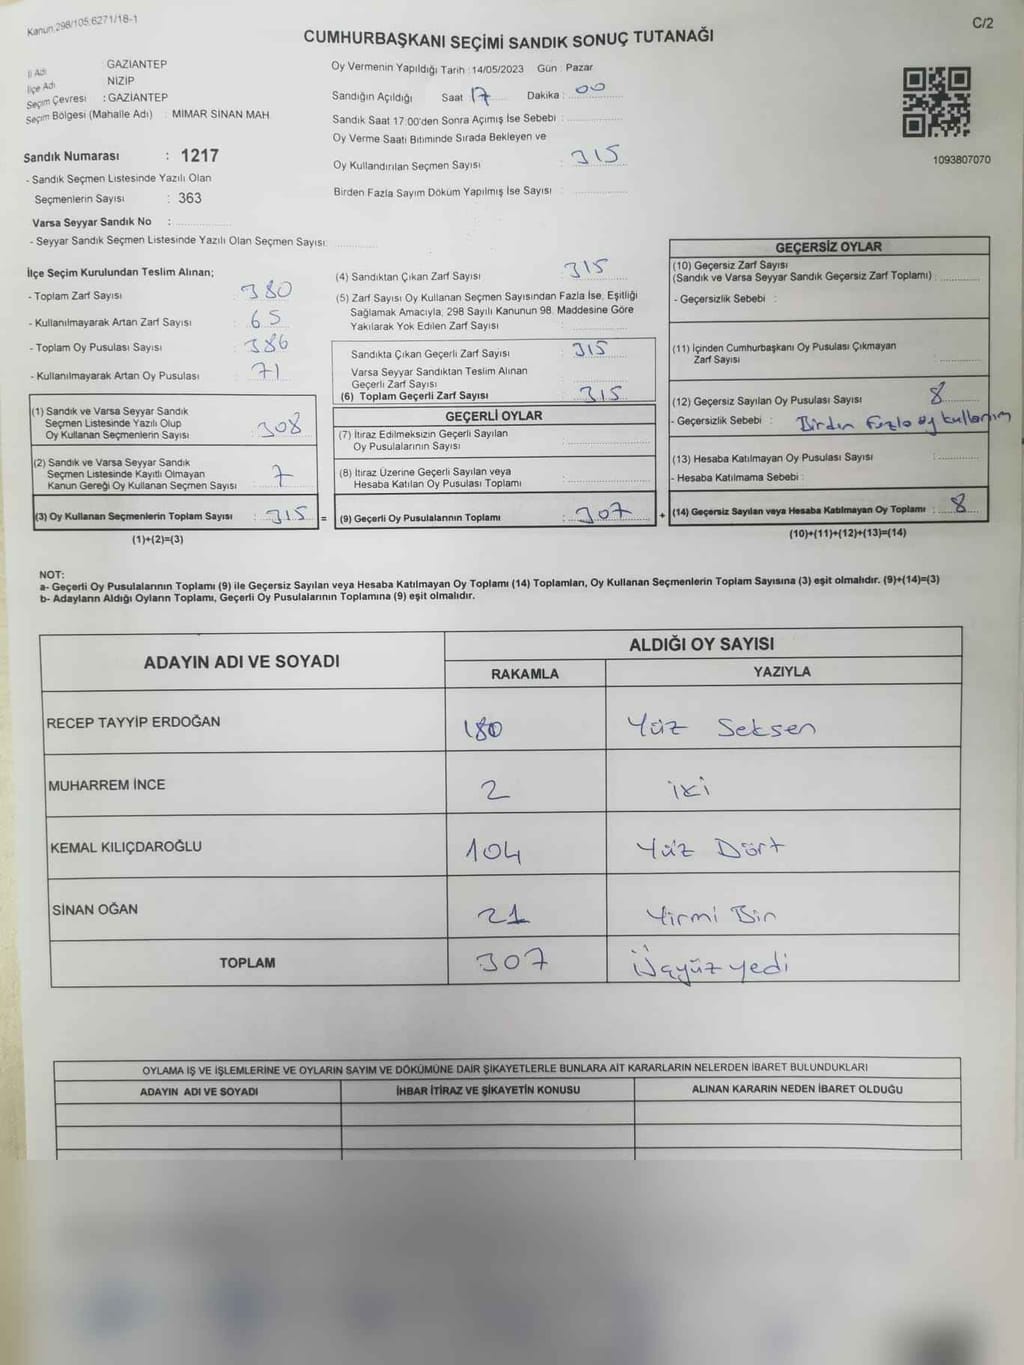 Kanun.298/105.6271/18-1
C/2
CUMHURBAŞKANI SEÇİMİ SANDIK SONUÇ TUTANAĞI
İl Adı GAZİANTEP
İlçe Adı NİZİP
Seçim Çevresi : GAZİANTEP
Seçim Bölgesi (Mahalle Adı) : MİMAR SİNAN MAH
Sandık Numarası : 1217
- Sandık Seçmen Listesinde Yazılı Olan
Seçmenlerin Sayısı : 363
Varsa Seyyar Sandık No :
- Seyyar Sandık Seçmen Listesinde Yazılı Olan Seçmen Sayısı:
Oy Vermenin Yapıldığı Tarih : 14/05/2023 Gün : Pazar
Sandığın Açıldığı Saat 17 Dakika : 00
Sandık Saat 17:00'den Sonra Açımış İse Sebebi :
Oy Verme Saati Bitiminde Sırada Bekleyen ve
Oy Kullandırılan Seçmen Sayısı : 315
Birden Fazla Sayım Döküm Yapılmış İse Sayısı :
1093807070
İlçe Seçim Kurulundan Teslim Alınan;
- Toplam Zarf Sayısı : 380
- Kullanılmayarak Artan Zarf Sayısı : 65
- Toplam Oy Pusulası Sayısı : 386
- Kullanılmayarak Artan Oy Pusulası : 71
(1) Sandık ve Varsa Seyyar Sandık
Seçmen Listesinde Yazılı Olup
Oy Kullanan Seçmenlerin Sayısı : 308
(2) Sandık ve Varsa Seyyar Sandık
Seçmen Listesinde Kayıtlı Olmayan
Kanun Gereği Oy Kullanan Seçmen Sayısı : 7
(3) Oy Kullanan Seçmenlerin Toplam Sayısı : 315 =
(1)+(2)=(3)
(4) Sandıktan Çıkan Zarf Sayısı : 315
(5) Zarf Sayısı Oy Kullanan Seçmen Sayısından Fazla İse, Eşitliği
Sağlamak Amacıyla; 298 Sayılı Kanunun 98. Maddesine Göre
Yakılarak Yok Edilen Zarf Sayısı :
Sandıkta Çıkan Geçerli Zarf Sayısı : 315
Varsa Seyyar Sandıktan Teslim Alınan
Geçerli Zarf Sayısı :
(6) Toplam Geçerli Zarf Sayısı : 315
GEÇERLİ OYLAR
(7) İtiraz Edilmeksizin Geçerli Sayılan
Oy Pusulalarının Sayısı :
(8) İtiraz Üzerine Geçerli Sayılan veya
Hesaba Katılan Oy Pusulası Toplamı :
(9) Geçerli Oy Pusulalarının Toplamı : 307 +
GEÇERSİZ OYLAR
(10) Geçersiz Zarf Sayısı
(Sandık ve Varsa Seyyar Sandık Geçersiz Zarf Toplamı) :
- Geçersizlik Sebebi :
(11) İçinden Cumhurbaşkanı Oy Pusulası Çıkmayan
Zarf Sayısı :
(12) Geçersiz Sayılan Oy Pusulası Sayısı : 8
- Geçersizlik Sebebi : Birden Fazla oy kullanım
(13) Hesaba Katılmayan Oy Pusulası Sayısı :
- Hesaba Katılmama Sebebi :
(14) Geçersiz Sayılan veya Hesaba Katılmayan Oy Toplamı : 8
(10)+(11)+(12)+(13)=(14)
NOT:
a- Geçerli Oy Pusulalarının Toplamı (9) ile Geçersiz Sayılan veya Hesaba Katılmayan Oy Toplamı (14) Toplamları, Oy Kullanan Seçmenlerin Toplam Sayısına (3) eşit olmalıdır. (9)+(14)=(3)
b- Adayların Aldığı Oyların Toplamı, Geçerli Oy Pusulalarının Toplamına (9) eşit olmalıdır.
ADAYIN ADI VE SOYADI
ALDIĞI OY SAYISI
RAKAMLA YAZIYLA
RECEP TAYYİP ERDOĞAN 180 Yüz Seksen
MUHARREM İNCE 2 iki
KEMAL KILIÇDAROĞLU 104 Yüz Dört
SİNAN OĞAN 21 Yirmi Bir
TOPLAM 307 Üçyüz yedi
OYLAMA İŞ VE İŞLEMLERİNE VE OYLARIN SAYIM VE DÖKÜMÜNE DAİR ŞİKAYETLERLE BUNLARA AİT KARARLARIN NELERDEN İBARET BULUNDUKLARI
ADAYIN ADI VE SOYADI İHBAR İTİRAZ VE ŞİKAYETİN KONUSU ALINAN KARARIN NEDEN İBARET OLDUĞU